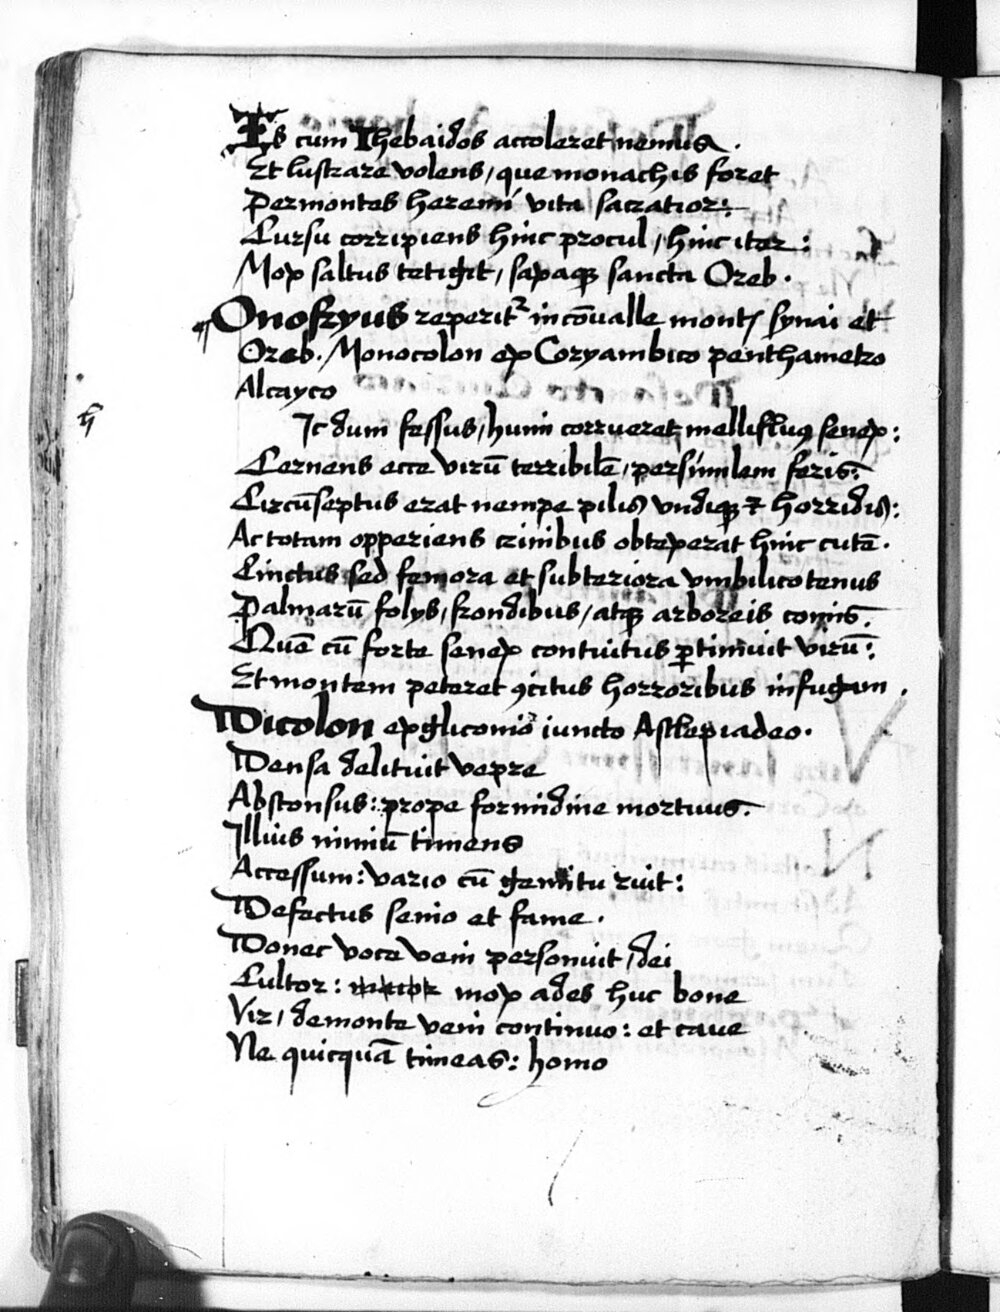 Is cum Thebaidos accoleret nemus.
Et lustrare volens, que monachis foret
Permontes heremi vita sacratior:
Cursu corripiens hinc procul, hinc iter:
Mox saltus tetigit, saxaqꝫ sancta Oreb.
¶ Onofryus reperitᷣ in cōualle montꝭ synai et
Oreb. Monocolon ex Coryambico penthametro
Alcayco
h
Ic dum fessus, humi corrueret mellifluꝯ senex:
Cernens ecce virū terribilē, persimilem feris:
Circūseptus erat nempe pilis vndiqꝫ ⁊ horridis:
Ac totam opperiens crinibus obtexerat hinc cutē.
Cinctus sed femora et subteriora vmbilicotenus
Palmarū folys, frondibus, atqꝫ arboreis comis.
Quē cū forte senex contuitus ꝑtimuit virū:
Et montem peteret ꝯcitus horroribus infugam.
Dicolon exgliconio iuncto Asclepiadeo.
Densa delituit vepre
Absconsus: prope formidine mortuus.
Illius nimiū timens
Accessum: vario cū gemitu ruit:
Defectus senio et fame.
Donec voce veni personuit, dei
Cultor: mox ades huc bone
Vir, demonte veni continuo: et caue
Ne quicquā timeas: homo